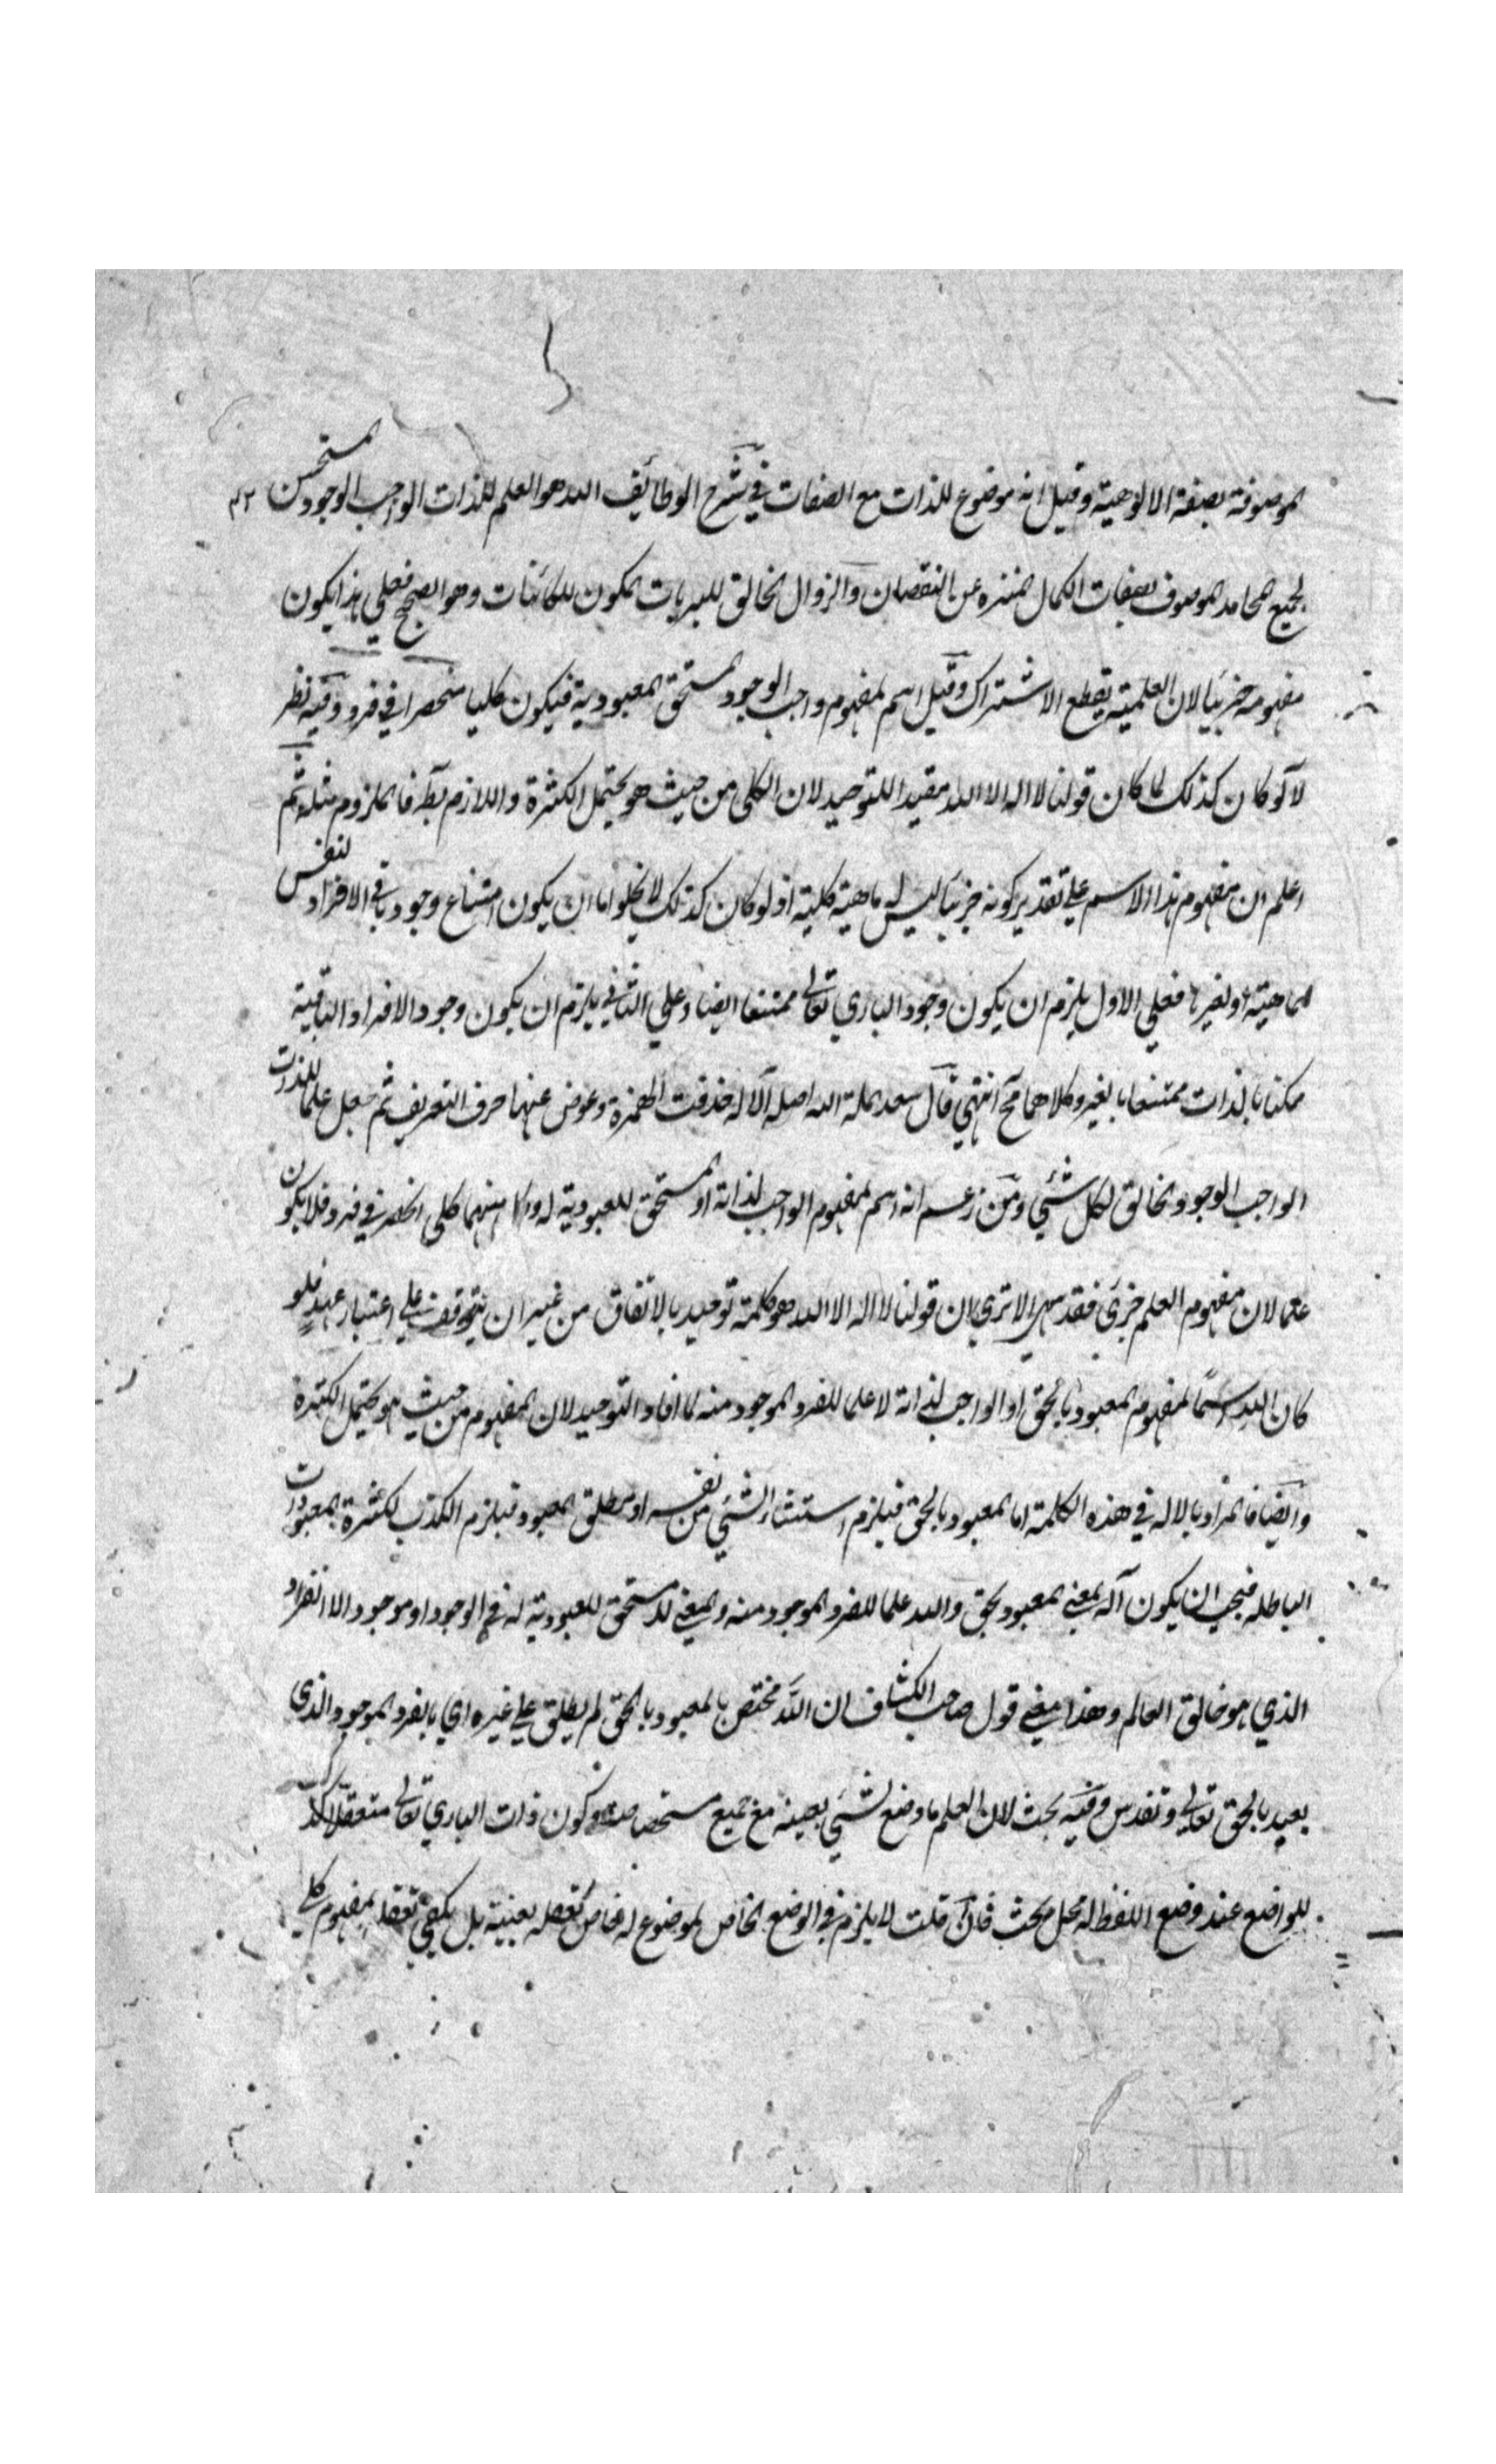 الموصوفة بصفة الالوهية وقيل انه موضوع للذات مع الصفات في شرح الوظائف الله هو العلم للذات الواجب الوجود المستحسن
لجميع المحامد الموصوف بصفات الكمال المنزه عن النقصان والزوال الخالق للبريات المكون للكائنات وهو الصحيح فعلي هذا يكون
مفهومه جزئيا لان العلمية يقطع الاشتراك وقيل اسم لمفهوم واجب الوجود المستحق المعبودية فيكون كليا منحصرا في فرد وفيه نظر
لانه لو كان كذلك لما كان قولنا لا اله الا الله مفيدا للتوحيد لان الكلى من حيث هو يحتمل الكثرة واللازم بط فالملزوم مثله ثم
اعلم ان مفهوم هذا الاسم علي تقدير كونه جزئيا ليس له ماهية كلية اذ لو كان كذلك لا يخلو اما ان يكون امتناع وجود باقي الافراد لنفس
الماهية او لغيرها فعلي الاول يلزم ان يكون وجود الباري تعالي ممتنعا ايضا وعلي الثاني يلزم ان يكون وجود الافراد الباقية
ممكنا بالذات ممتنعا بالغير وكلاهما مح انتهي قال سعد الملة الله اصله الاله حذفت الهمزة وعوض عنها حرف التعريف ثم جعل علما للذات
الواجب الوجود الخالق لكل شئي ومن زعم انه اسم لمفهوم الواجب لذاته او المستحق للعبودية له وكل منهما كلى انحصر في فرد فلا يكون
علما لان مفهوم العلم جزئ فقد سهي الا تري ان قولنا لا اله الا الله هو كلمة توحيد بالاتفاق من غير ان يتوقف علي اعتبار عهد فلو
كان الله اسما لمفهوم المعبود بالحق او الواجب لذاته لا علما للفرد الموجود منه لما افاد التوحيد لان المفهوم من حيث هو يحتمل الكثرة
وايضا فالمراد بالاله في هذه الكلمة اما المعبود بالحق فيلزم استثناء الشئي من نفسه او مطلق المعبود فيلزم الكذب لكثرة المعبودات
الباطله فيجب ان يكون اله بمعني المعبود بحق والله علما للفرد الموجود منه والمعني لا مستحق للعبودية له في الوجود او موجود الا انفراد
الذي هو خالق العالم وهذا معني قول صاحب الكشاف ان الله مختص بالمعبود بالحق لم يطلق علي غيره اي بالفرد الموجود الذي
يعبد بالحق تعالي وتقدس وفيه بحث لان العلم ما وضع لشئي بعينه مع جميع مشخصاته وكون ذات الباري تعالي متعقلا كذلك
للواضع عند وضع اللفظ له محل بحث فان قلت لا يلزم في الوضع الخاص لموضوع له خاص تعقله بعينه بل يكفي تعقله بمفهوم كلي